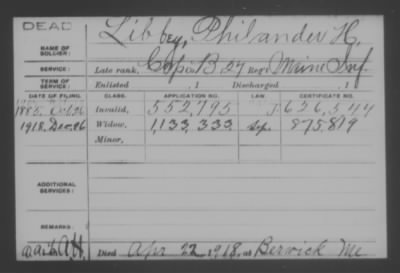 DEAD
NAME OF SOLDIER: Libbey, Philander H.
SERVICE: Late rank, Corp. Co. B 27 Reg't Maine Inf.
TERM OF SERVICE: Enlisted , 1 Discharged , 1
DATE OF FILING. CLASS. APPLICATION NO. LAW. CERTIFICATE NO.
1885 Invalid, 552,795 626,544
1918, Dec. 26 Widow, 1,133,333 Sep. 875,819
Minor,
ADDITIONAL SERVICES:
REMARKS:
Died Apr 22, 1918, at Berwick Me